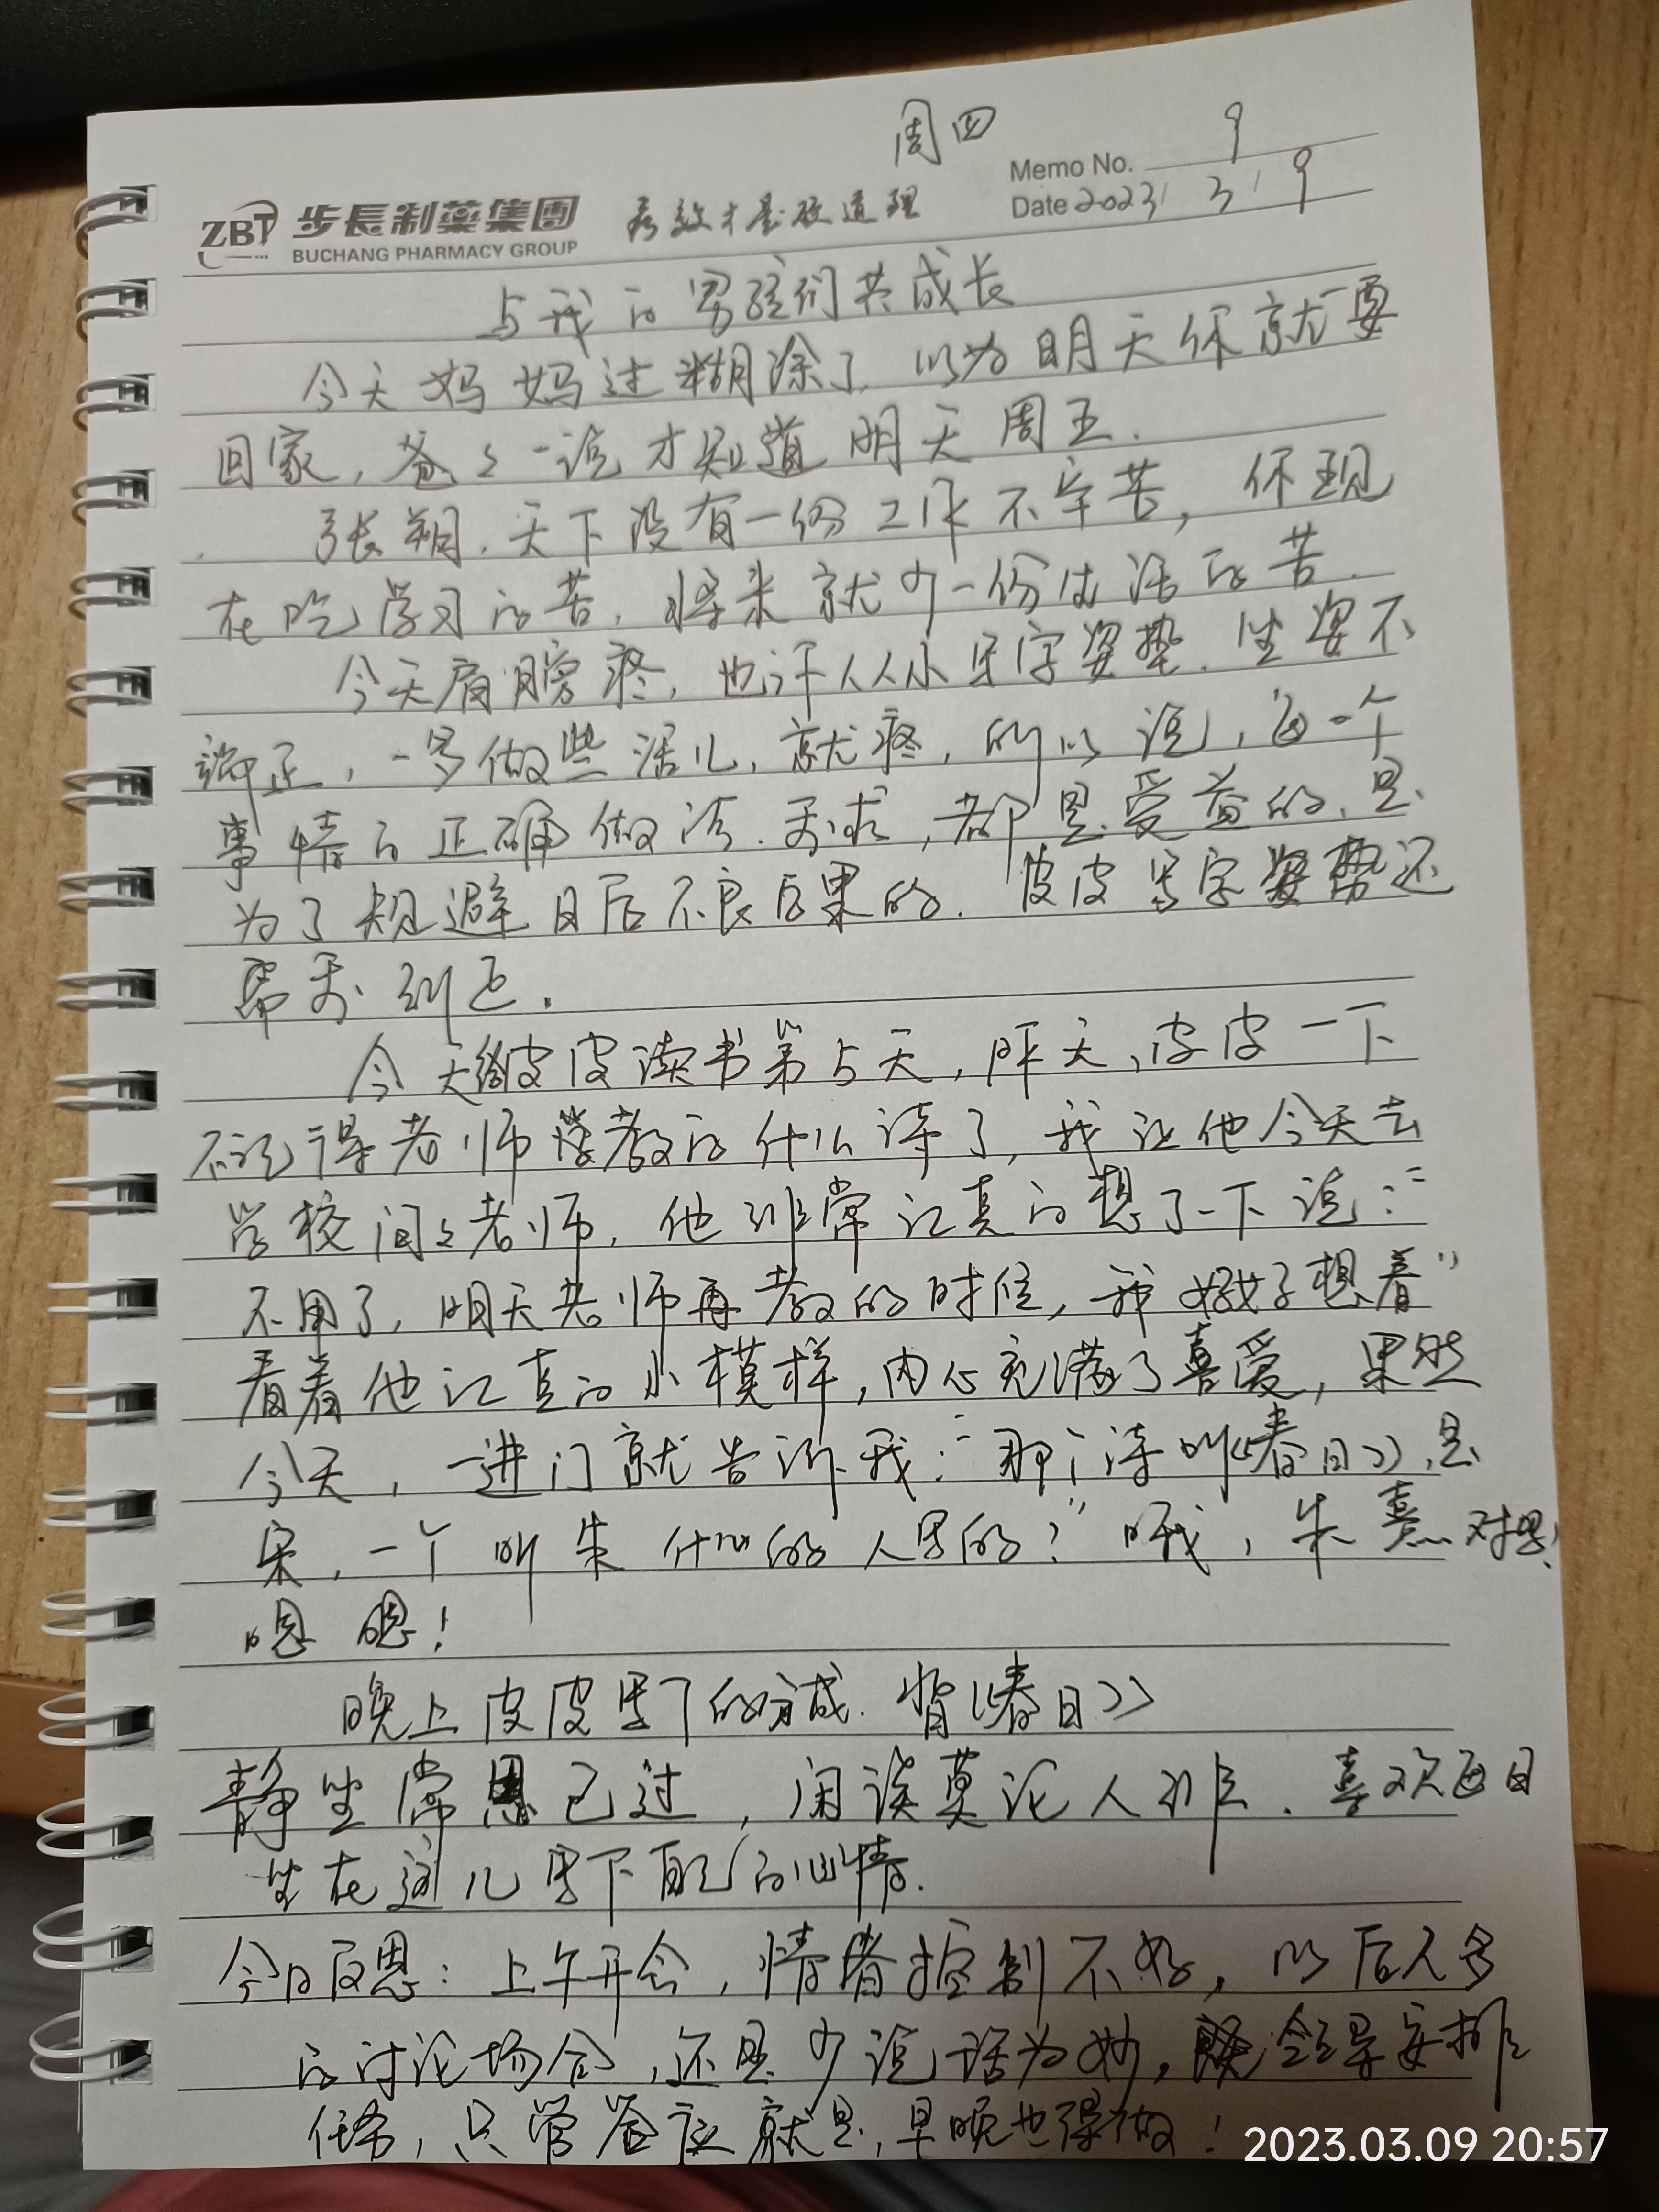 周四
Memo No. 9
ZBT 步長制藥集團 有效才是硬道理
Date 2023/ 3/ 9
BUCHANG PHARMACY GROUP
与我的男孩们共成长
今天妈妈过糊涂了,以为明天你就要
回家,爸々一说才知道明天周五.
张朔.天下没有一份工作不辛苦,你现
在吃学习的苦,将来就少一份生活的苦.
今天肩膀疼,也许从小写字姿势.坐姿不
端正,一多做些活儿,就疼,所以说,每一个
事情的正确做法.要求,都是受益的,是
为了规避日后不良后果的.皮皮写字姿势还
需要纠正.
今天皮皮读书第5天,昨天,皮皮一下
不记得老师教的什么诗了,我让他今天去
学校问々老师,他非常认真的想了一下说:“
不用了,明天老师再教的时候,我好好想着”
看着他认真的小模样,内心充满了喜爱,果然
今天,一进门就告诉我:“那个诗叫《春日》,是
宋,一个叫朱什么的人写的?”哦,朱熹对吧!
嗯嗯!
晚上皮皮写了的分成.背《春日》
静坐常思己过,闲谈莫论人非.喜欢每日
坐在这儿写下自己的心情.
今日反思:上午开会,情绪控制不好,以后人多
的讨论场合,还是少说话为妙,领导安排
任务,只管答应就是,早晚也得做!
2023.03.09 20:57